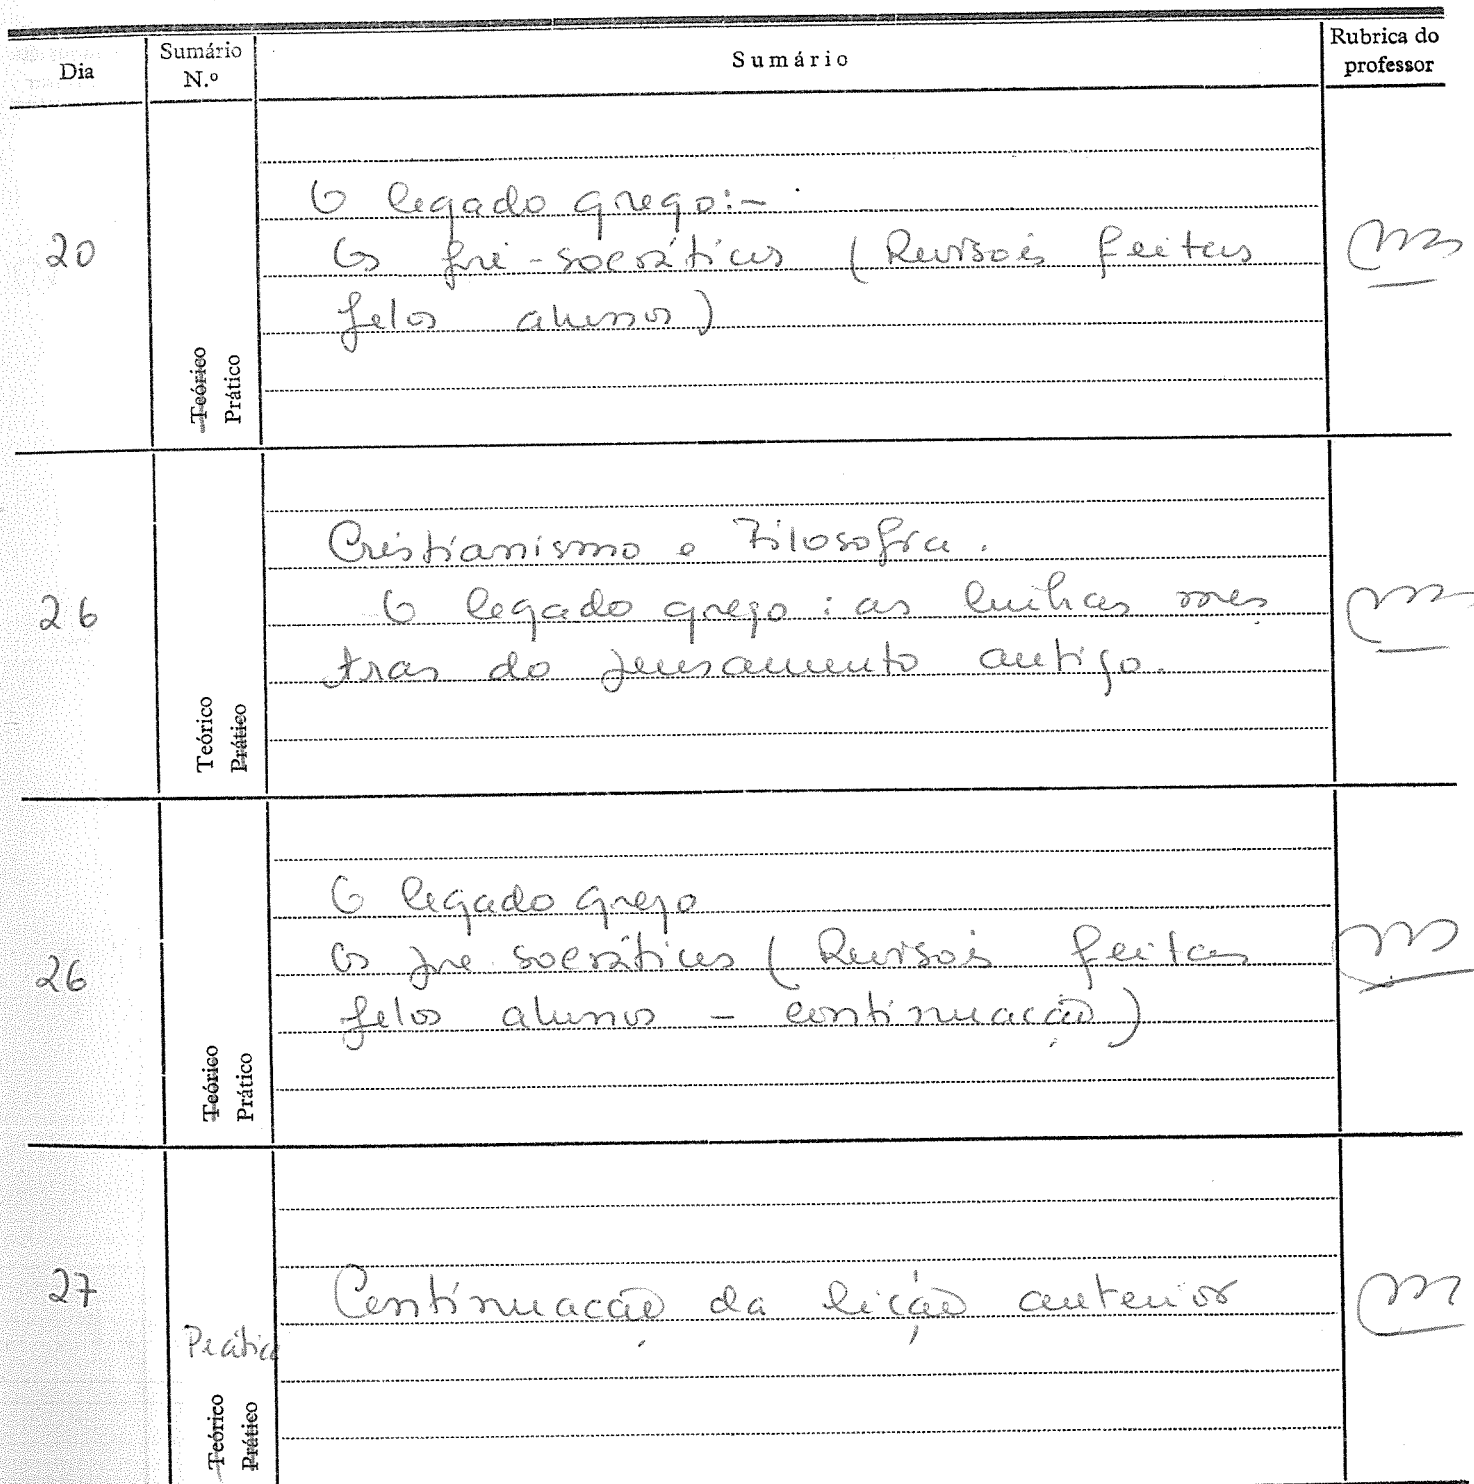 Dia
Sumário N.º
Sumário
Rubrica do professor
20
O legado grego:-
Os pré-socráticos (Revisões feitas
pelos alunos)
Teórico
Prático
26
Cristianismo e Filosofia.
O legado grego: as linhas mes
tras do pensamento antigo.
Teórico
Prático
26
O legado grego
Os pré-socráticos (Revisões feitas
pelos alunos - continuação)
Teórico
Prático
27
Continuação da lição anterior
Prático
Teórico
Prático